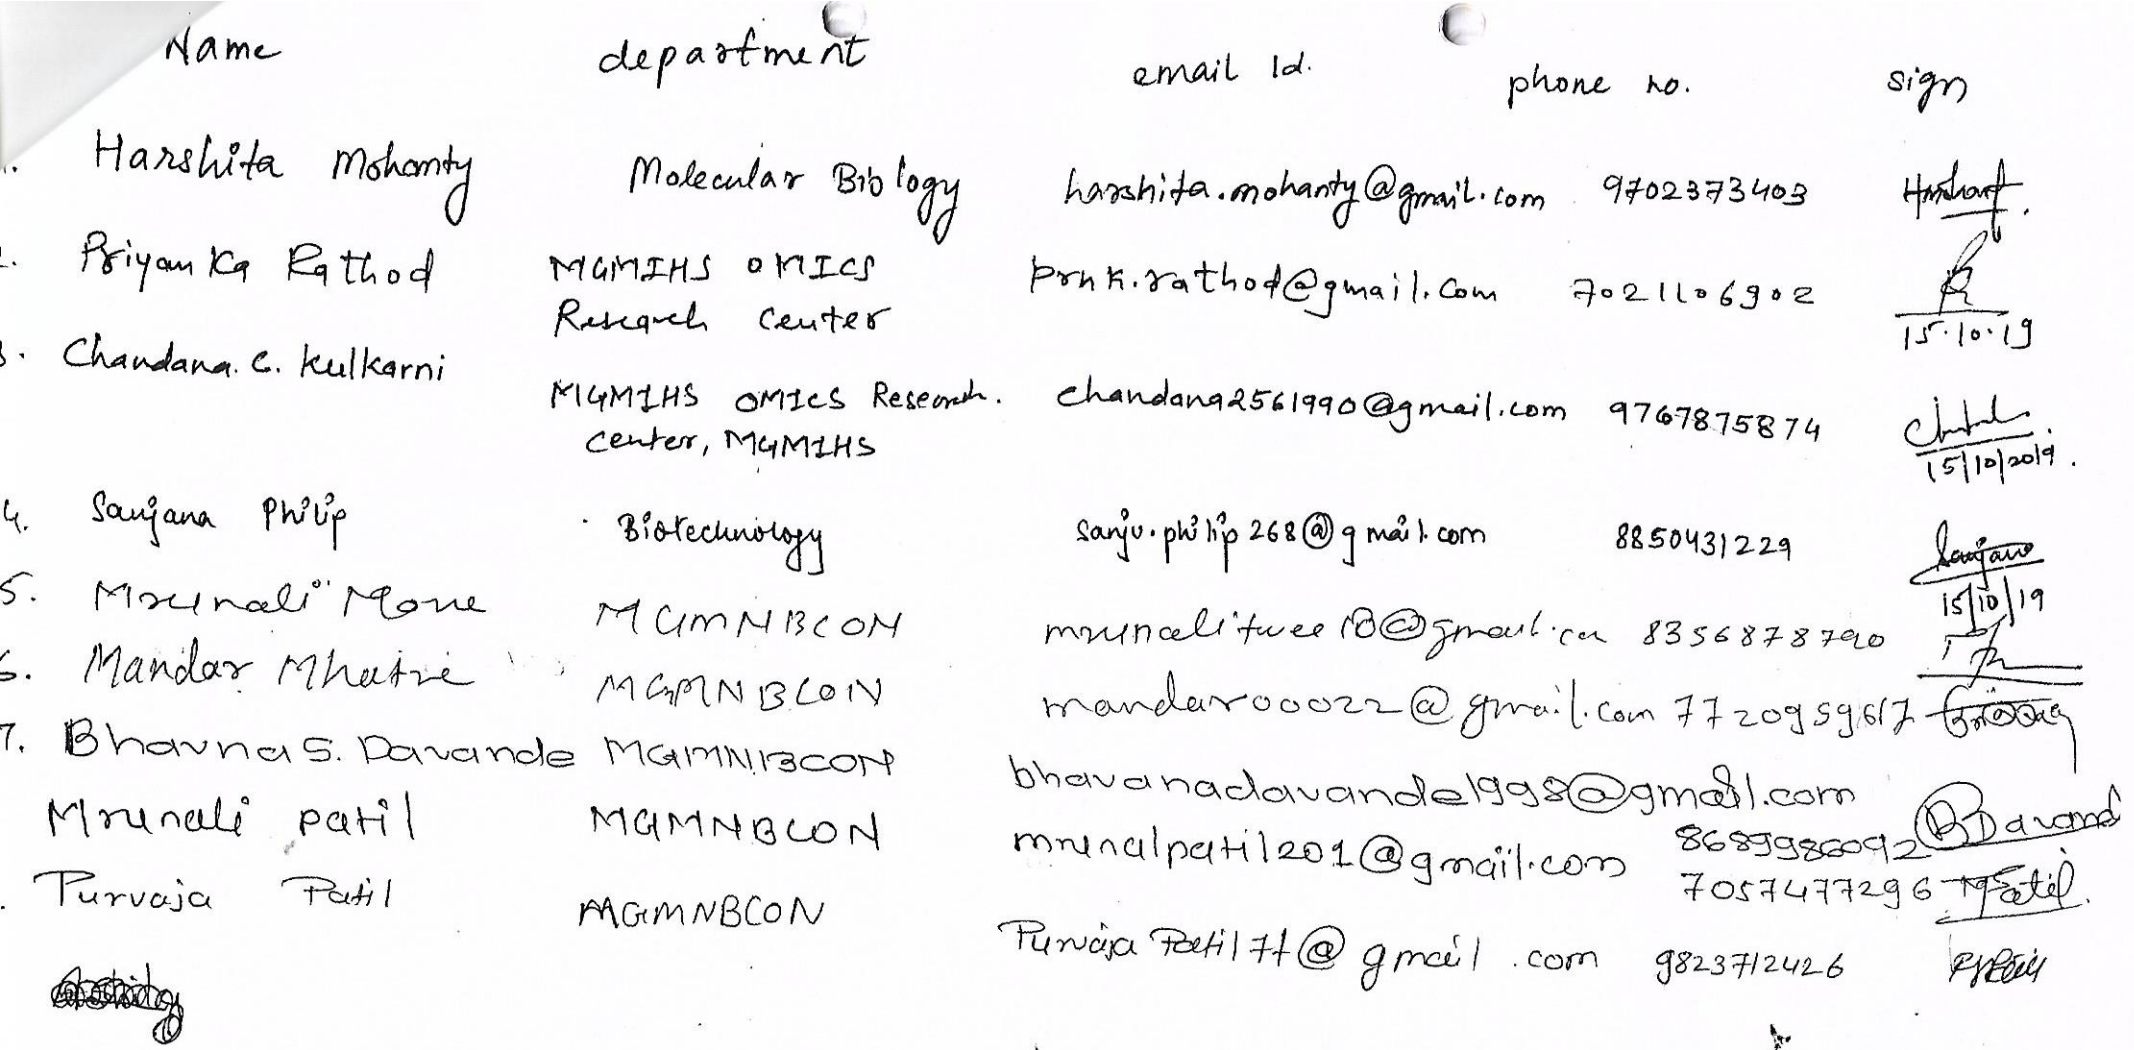 Name department email Id. phone no. sign
1. Harshita Mohanty Molecular Biology harshita.mohanty@gmail.com 9702373403
2. Priyanka Rathod MGMIHS OMICS prnk.rathod@gmail.com 7021106902
Research Center 15.10.19
3. Chandana. C. Kulkarni
MGMIHS OMICS Research. chandana2561990@gmail.com 9767875874
Center, MGMIHS 15/10/2019.
4. Sanjana Philip Biotechnology sanju.philip268@gmail.com 8850431229 Sanjana
15/10/19
5. Mrunali More MGMNBCON 8356878790
6. Mandar Mhatre MGMNBCON mandar00022@gmail.com 7720959617
7. Bhavna S. Davande MGMNBCON bhavanadavande1998@gmail.com
8689986092 BDavand
Mrunali patil MGMNBCON mrunalpatil201@gmail.com
7057477296 MPatil.
Purvaja Patil MGMNBCON PurvajaPatil77@gmail.com 9823712426